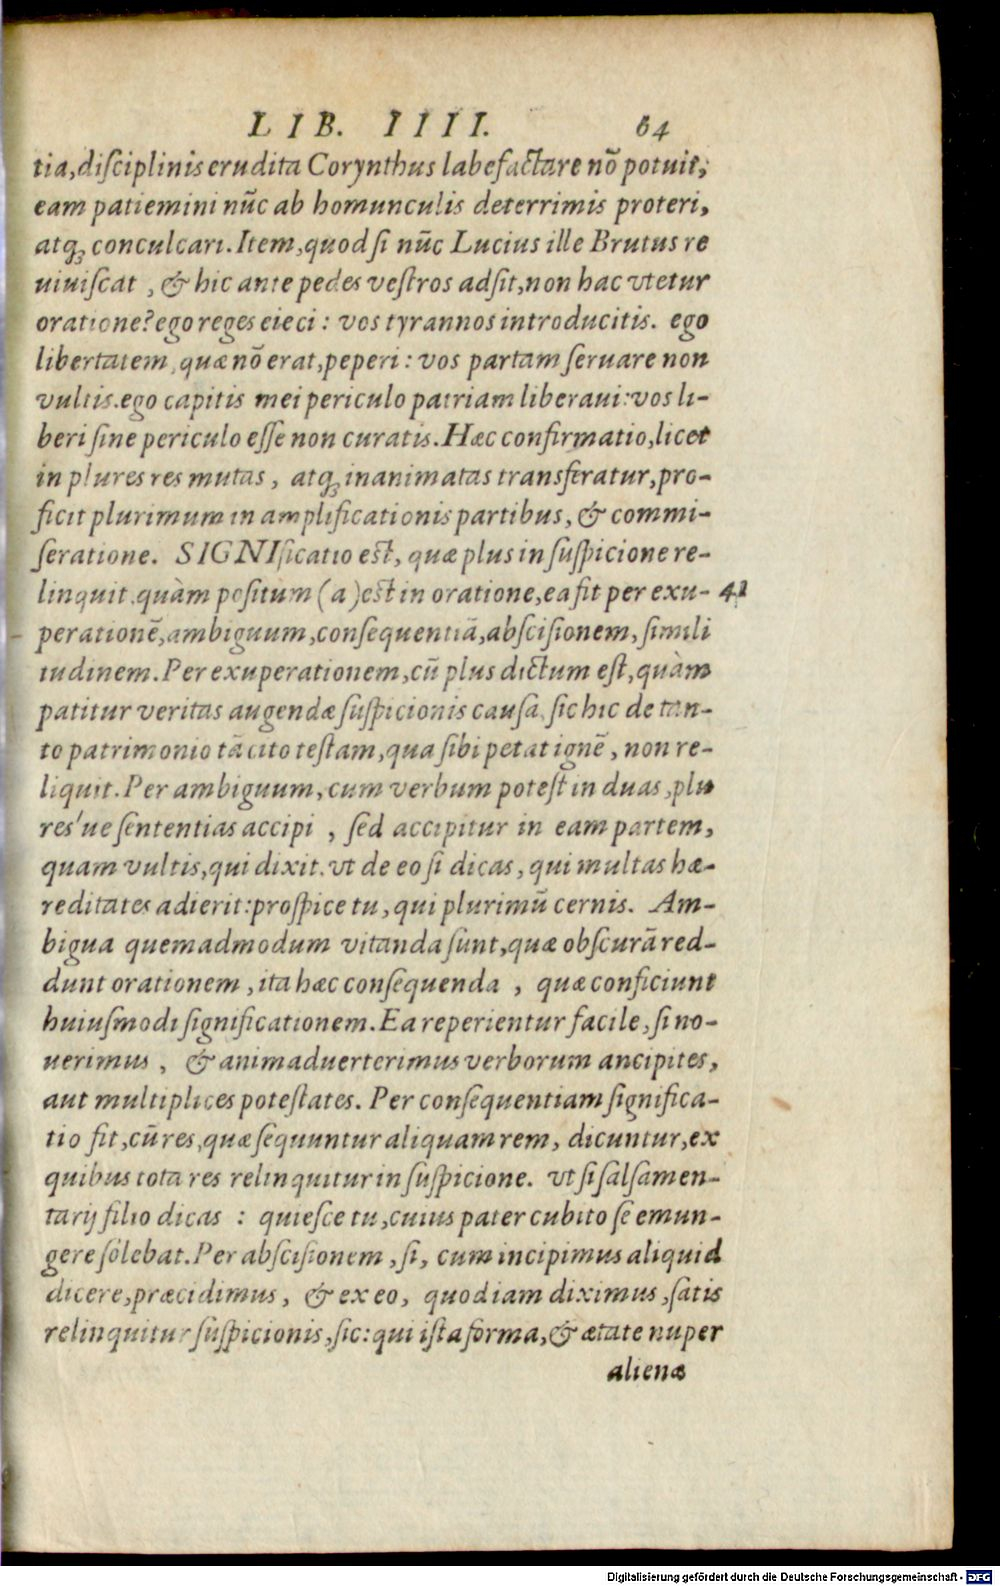 LIB. IIII. 64
tia, disciplinis erudita Corynthus labefactare nõ potuit,
eam patiemini nũc ab homunculis deterrimis proteri,
atqꝫ conculcari. Item, quod si nũc Lucius ille Brutus re
uiuiſcat, & hic ante pedes veſtros adſit, non hac vtetur
oratione? ego reges eieci: vos tyrannos introducitis. ego
libertatem, quæ nõ erat, peperi: vos partam ſeruare non
vultis. ego capitis mei periculo patriam liberaui: vos li-
beri ſine periculo eſſe non curatis. Hæc confirmatio, licet
in plures res mutas, atqꝫ inanimatas transferatur, pro-
ficit plurimum in amplificationis partibus, & commi-
ſeratione. SIGNIficatio eſt, quæ plus in ſuſpicione re-
linquit, quàm poſitum (a) eſt in oratione, ea fit per exu- 41
perationẽ, ambiguum, conſequentiã, abſciſionem, ſimili
tudinem. Per exuperationem, cũ plus dictum eſt, quàm
patitur veritas augendæ ſuſpicionis cauſa, ſic hic de tan-
to patrimonio tã cito teſtam, qua ſibi petat ignẽ, non re-
liquit. Per ambiguum, cum verbum poteſt in duas, plu
res'ue ſententias accipi, ſed accipitur in eam partem,
quam vultis, qui dixit. vt de eo ſi dicas, qui multas hæ-
reditates adierit: proſpice tu, qui plurimũ cernis. Am-
bigua quemadmodum vitanda ſunt, quæ obſcurã red-
dunt orationem, ita hæc conſequenda, quæ conficiunt
huiuſmodi ſignificationem. Ea reperientur facile, ſi no-
uerimus, & animaduerterimus verborum ancipites,
aut multiplices poteſtates. Per conſequentiam ſignifica-
tio fit, cũ res, quæ ſequuntur aliquam rem, dicuntur, ex
quibus tota res relinquitur in ſuſpicione. vt ſi ſalſamen-
tarij filio dicas: quieſce tu, cuius pater cubito ſe emun-
gere ſolebat. Per abſciſionem, ſi, cum incipimus aliquid
dicere, præcidimus, & ex eo, quod iam diximus, ſatis
relinquitur ſuſpicionis, ſic: qui iſta forma, & ætate nuper
alienæ
Digitalisierung gefördert durch die Deutsche Forschungsgemeinschaft - DFG